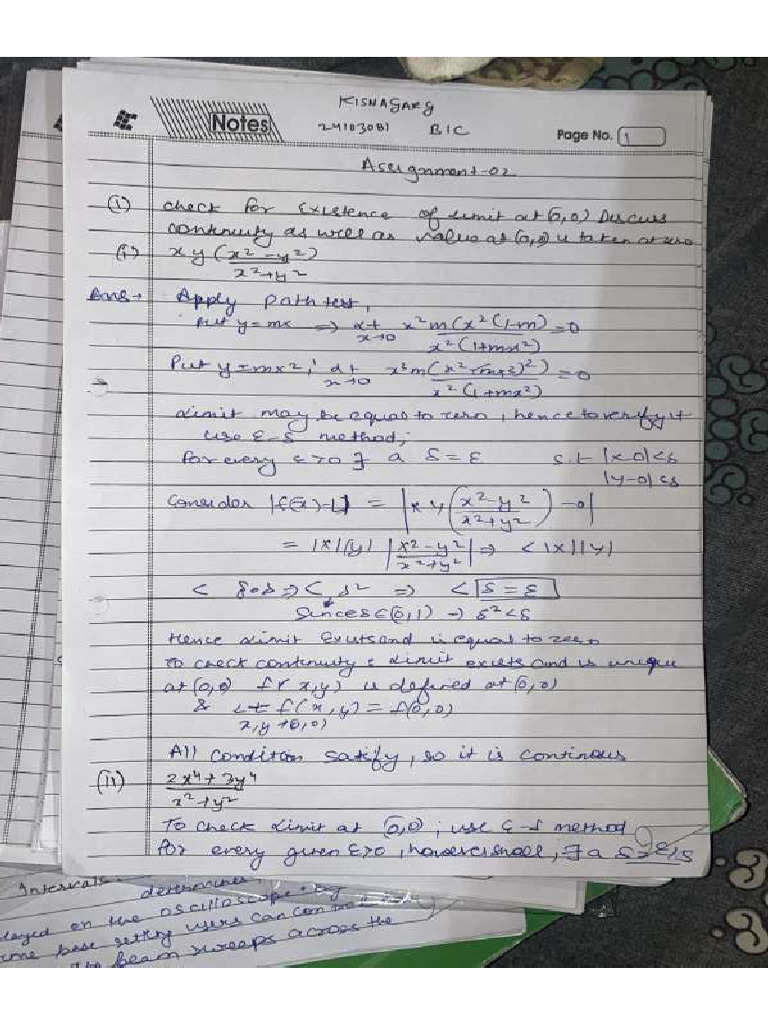 KISNAGARG
Notes
24103081 BIC
Page No. 1
Assignment-02
(1) check for Existence of limit at (0,0) Discuss
continuity as well as value at (0,0) is taken as zero
(i) xy (x² - y²)
x² + y²
Ans → Apply path test,
Put y = mx ⇒ Lt x→0 x²m(x²(1-m) = 0
x²(1+mx²)
Put y = mx², Lt x→0 x³m(x²-(mx²)²) = 0
x²(1+mx²)
Limit may be equal to zero, hence to verify it
use ε-δ method,
for every ε>0 ∃ a δ = ε s.t |x-0|<δ
|y-0|<δ
Consider |f(x)-L| = |xy (x²-y² / x²+y²) - 0|
= |x||y| |x²-y² / x²+y²| ⇒ < |x||y|
< δ.δ ⇒ < δ² ⇒ < δ = ε
Since δ∈(0,1) → δ² < δ
Hence Limit Exists and is equal to zero
To check continuity : Limit exists and is unique
at (0,0) f(x,y) is defined at (0,0)
& Lt f(x,y) = f(0,0)
x,y→(0,0)
All condition satisfy, so it is continous
(ii) 2x⁴ + 3y⁴
x² + y²
To check Limit at (0,0), use ε-δ method
for every given ε>0, however small, ∃ a δ = ε/5
Intervals determines
layed on the oscilloscope. By
time base setting users can control
The beam sweeps across the